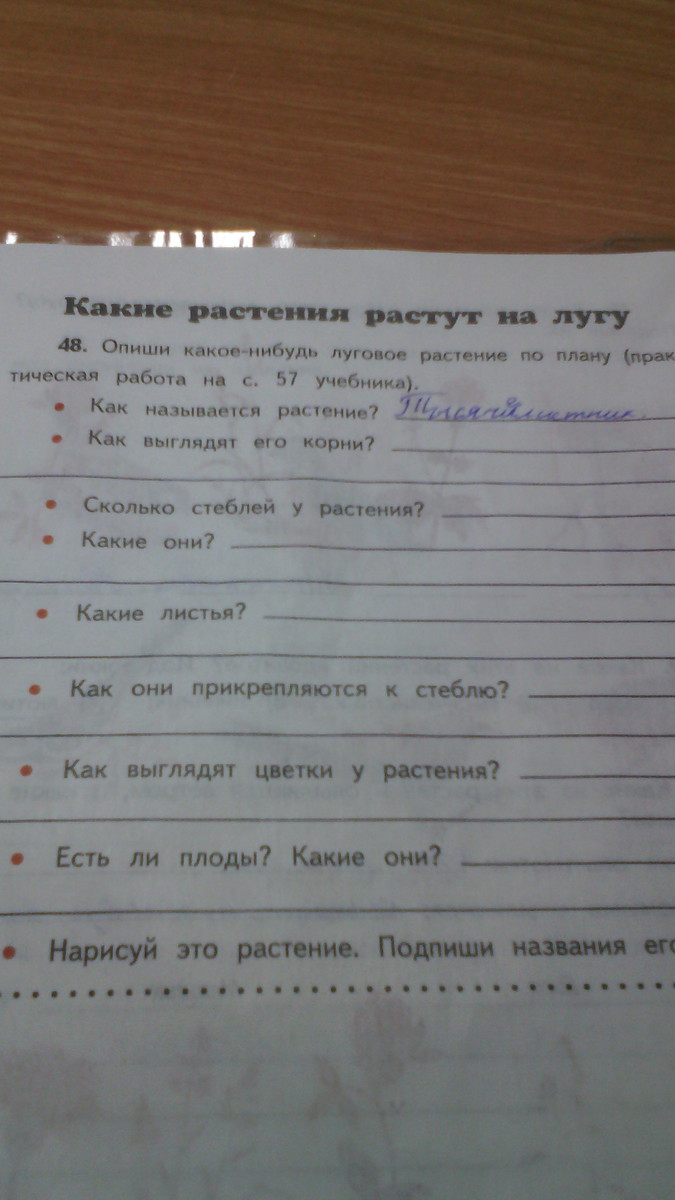 Какие растения растут на лугу
48. Опиши какое-нибудь луговое растение по плану (прак
тическая работа на с. 57 учебника).
• Как называется растение? Тысячелистник.
• Как выглядят его корни?
• Сколько стеблей у растения?
• Какие они?
• Какие листья?
• Как они прикрепляются к стеблю?
• Как выглядят цветки у растения?
• Есть ли плоды? Какие они?
• Нарисуй это растение. Подпиши названия его